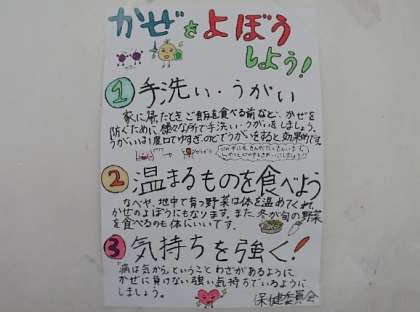 かぜをよぼう
しよう!
1 手洗い・うがい
家に帰ったとき、ご飯を食べる前など、かぜを
防ぐために様々な所で手洗い・うがいをしましょう。
うがいは1度口をゆすぎ、のどでうがいをすると効果的です。
2 温まるものを食べよう
なべや、地中で育つ野菜は体を温めてくれ、
かぜのよぼうにもなります。また、冬が旬の野菜
を食べるのも体にいいです。
3 気持ちを強く!
病は気から、ということわざがあるように
かぜに負けない強い気持ちでいるように
しましょう。
保健委員会